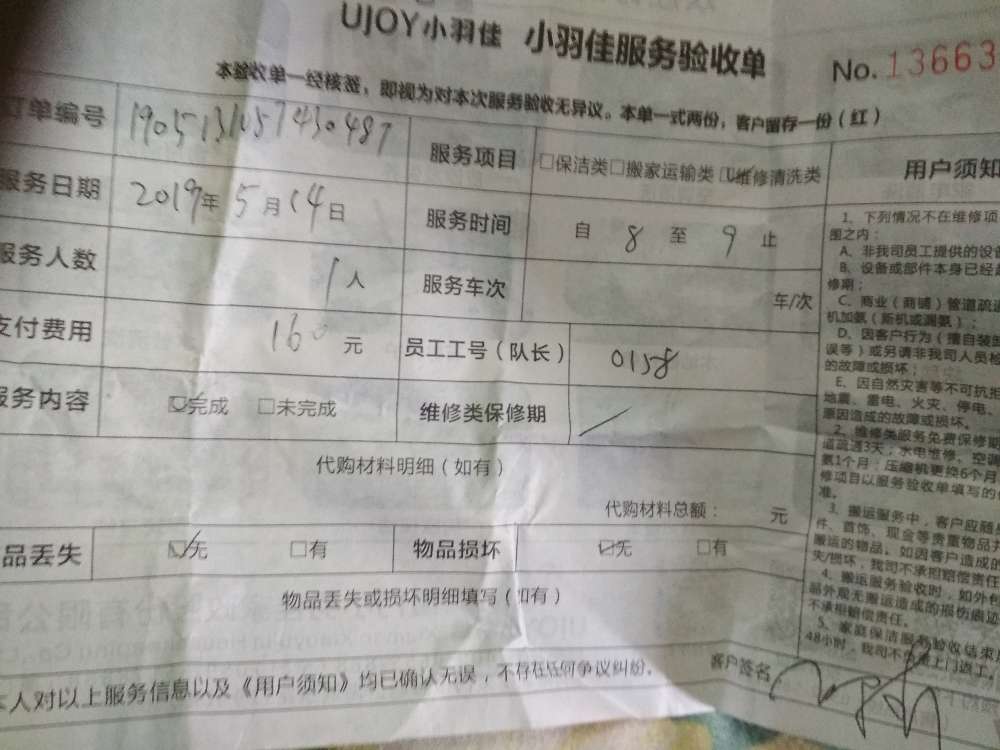 UJOY小羽佳 小羽佳服务验收单 No. 13663
本验收单一经核签，即视为对本次服务验收无异议。本单一式两份，客户留存一份（红）
订单编号 1905131057430487 服务项目 □保洁类□搬家运输类☑维修清洗类
服务日期 2019年5月14日 服务时间 自 8 至 9 止
服务人数 1人 服务车次 车/次
支付费用 160元 员工工号（队长） 0158
服务内容 ☑完成 □未完成 维修类保修期 /
代购材料明细（如有）
代购材料总额： 元
品丢失 ☑无 □有 物品损坏 ☑无 □有
物品丢失或损坏明细填写（如有）
本人对以上服务信息以及《用户须知》均已确认无误，不存在任何争议纠纷。
客户签名
用户须知
1、下列情况不在维修项
围之内：
A、非我司员工提供的设
B、设备或部件本身已经
修期；
C、商业（商铺）管道疏
机加氨（斯机或漏氨）；
D、因客户行为（擅自装卸
误等）或另请非我司人员检
的故障或损坏；
E、因自然灾害等不可抗
地震、雷电、火灾、停电、
原因造成的故障或损坏。
2、维修类服务免费保修期
道疏通3天；水电维修、空调
氨1个月；压缩机更换6个月
修项目以服务验收单填写的
准。
3、搬运服务中，客户应随
件、首饰、现金等贵重物品
搬运的物品。如因客户造成的
失/损坏，我司不承担赔偿责任
4、搬运服务验收时，如外包
品外观无搬运造成的损伤痕迹
不承担赔偿责任。
5、家庭保洁服务验收结束
48小时，我司不负责上门返工。